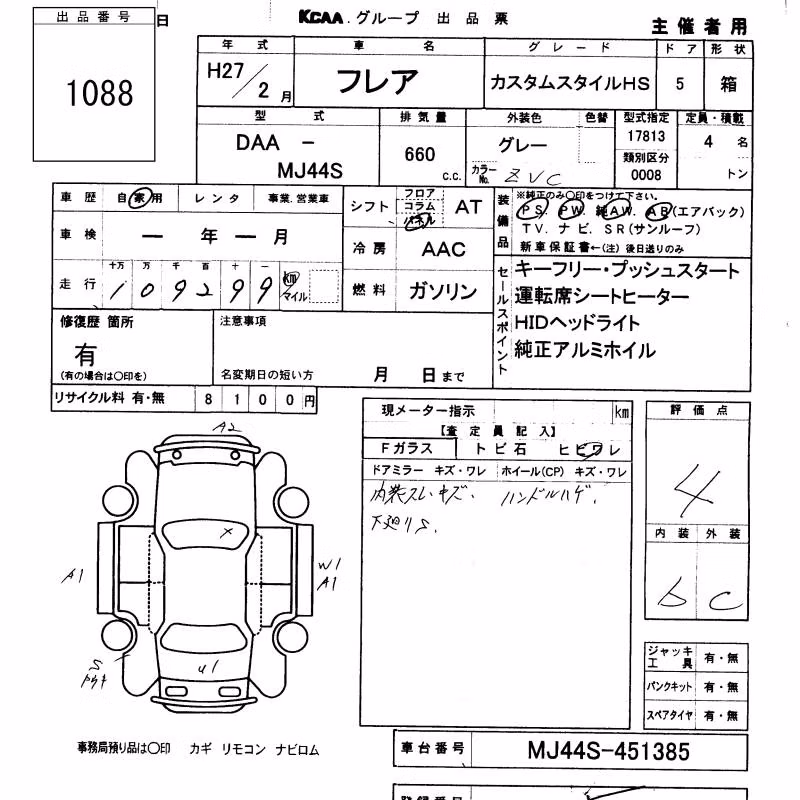 出品番号
1088
日
KCAA.グループ 出品票
主催者用
年式 車名 グレード ドア 形状
H27/2月 フレア カスタムスタイルHS 5 箱
型式 排気量 外装色 色替 型式指定 定員・積載
DAA - MJ44S 660 c.c. グレー 17813 4名
カラーNo. ZVC 類別区分 0008 トン
車歴 自家用 レンタ 事業.営業車
シフト フロア コラム パネル AT
車検 ー年ー月
冷房 AAC
走行 十万 万 千 百 十 一
109299 km マイル
燃料 ガソリン
装備品 ※純正のみ〇印をつけて下さい。
PS PW 純AW AB(エアバック)
TV. ナビ. SR(サンルーフ)
新車保証書←(注) 後日送りのみ
セールスポイント
キーフリー・プッシュスタート
運転席シートヒーター
HIDヘッドライト
純正アルミホイル
修復歴 箇所
有
(有の場合は〇印を)
注意事項
名変期日の短い方 月 日まで
リサイクル料 有・無 8100円
現メーター指示 km
【査定員記入】
Fガラス トビ石 ヒビワレ
ドアミラー キズ・ワレ ホイール(CP) キズ・ワレ
内装スレ、キズ、 ハンドルハゲ、
下廻りS、
評価点
4
内装 外装
b C
A2
X
A1
W1
A1
S
U1
ジャッキ工具 有・無
パンクキット 有・無
スペアタイヤ 有・無
事務局預り品は〇印 カギ リモコン ナビロム
車台番号 MJ44S-451385
登録番号